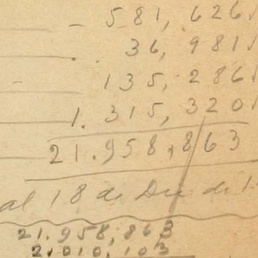 - 581,626
36,981
135,286
1.315,320
21.958,863
al 18 de Dre de 1
21.958,863
2.010,103